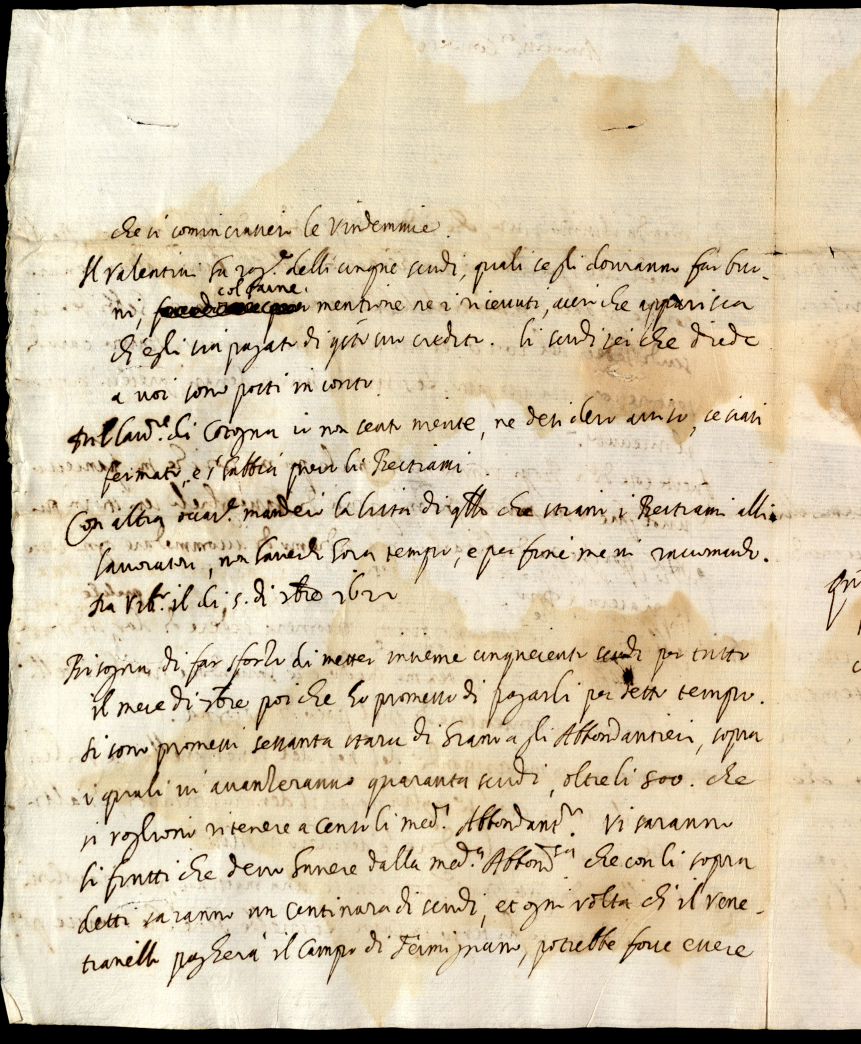 che si cominciavero le vindemmie.
Il Valentini fu rog.^e delli cinque scudi, quali se gli douranno far buo-
ni, col farne mentione ne i riceuuti, acciò che apparisca
ch'egli sia pagato di q̃sto suo credito. li scudi sei che diede
a voi sono posti in conto.
di Cotogna io non sento niente, ne desidero auiso, se siasi
fermato, e i Beltrami
Con altra occas.^e manderò la lista di q̃llo che i Beltrami alli
lauoratori, non hauendo hora tempo, e per fine me ni raccomando.
Da Vrb.^o il di 5. di 7bre 1622
Bisogna di far sforzo di metter insieme cinquecento scudi per tutto
il mese di 7bre poi che ho promesso di pagarli per detto tempo.
Si sono promessi settanta stara di Grano a gli Abbondantieri, sopra
i quali ui auanzeranno quaranta scudi, oltre li 500. che
si vogliono ritenere a censo li med.^i Abbondant.^ri Vi saranno
li frutti che deuo hauere dalla med.^a Abbond.^za che con li sopra
detti saranno un centinara di scudi, et ogni volta ch'il Vene-
tianello pagherà il Campo di Fermignano, potrebbe forse essere